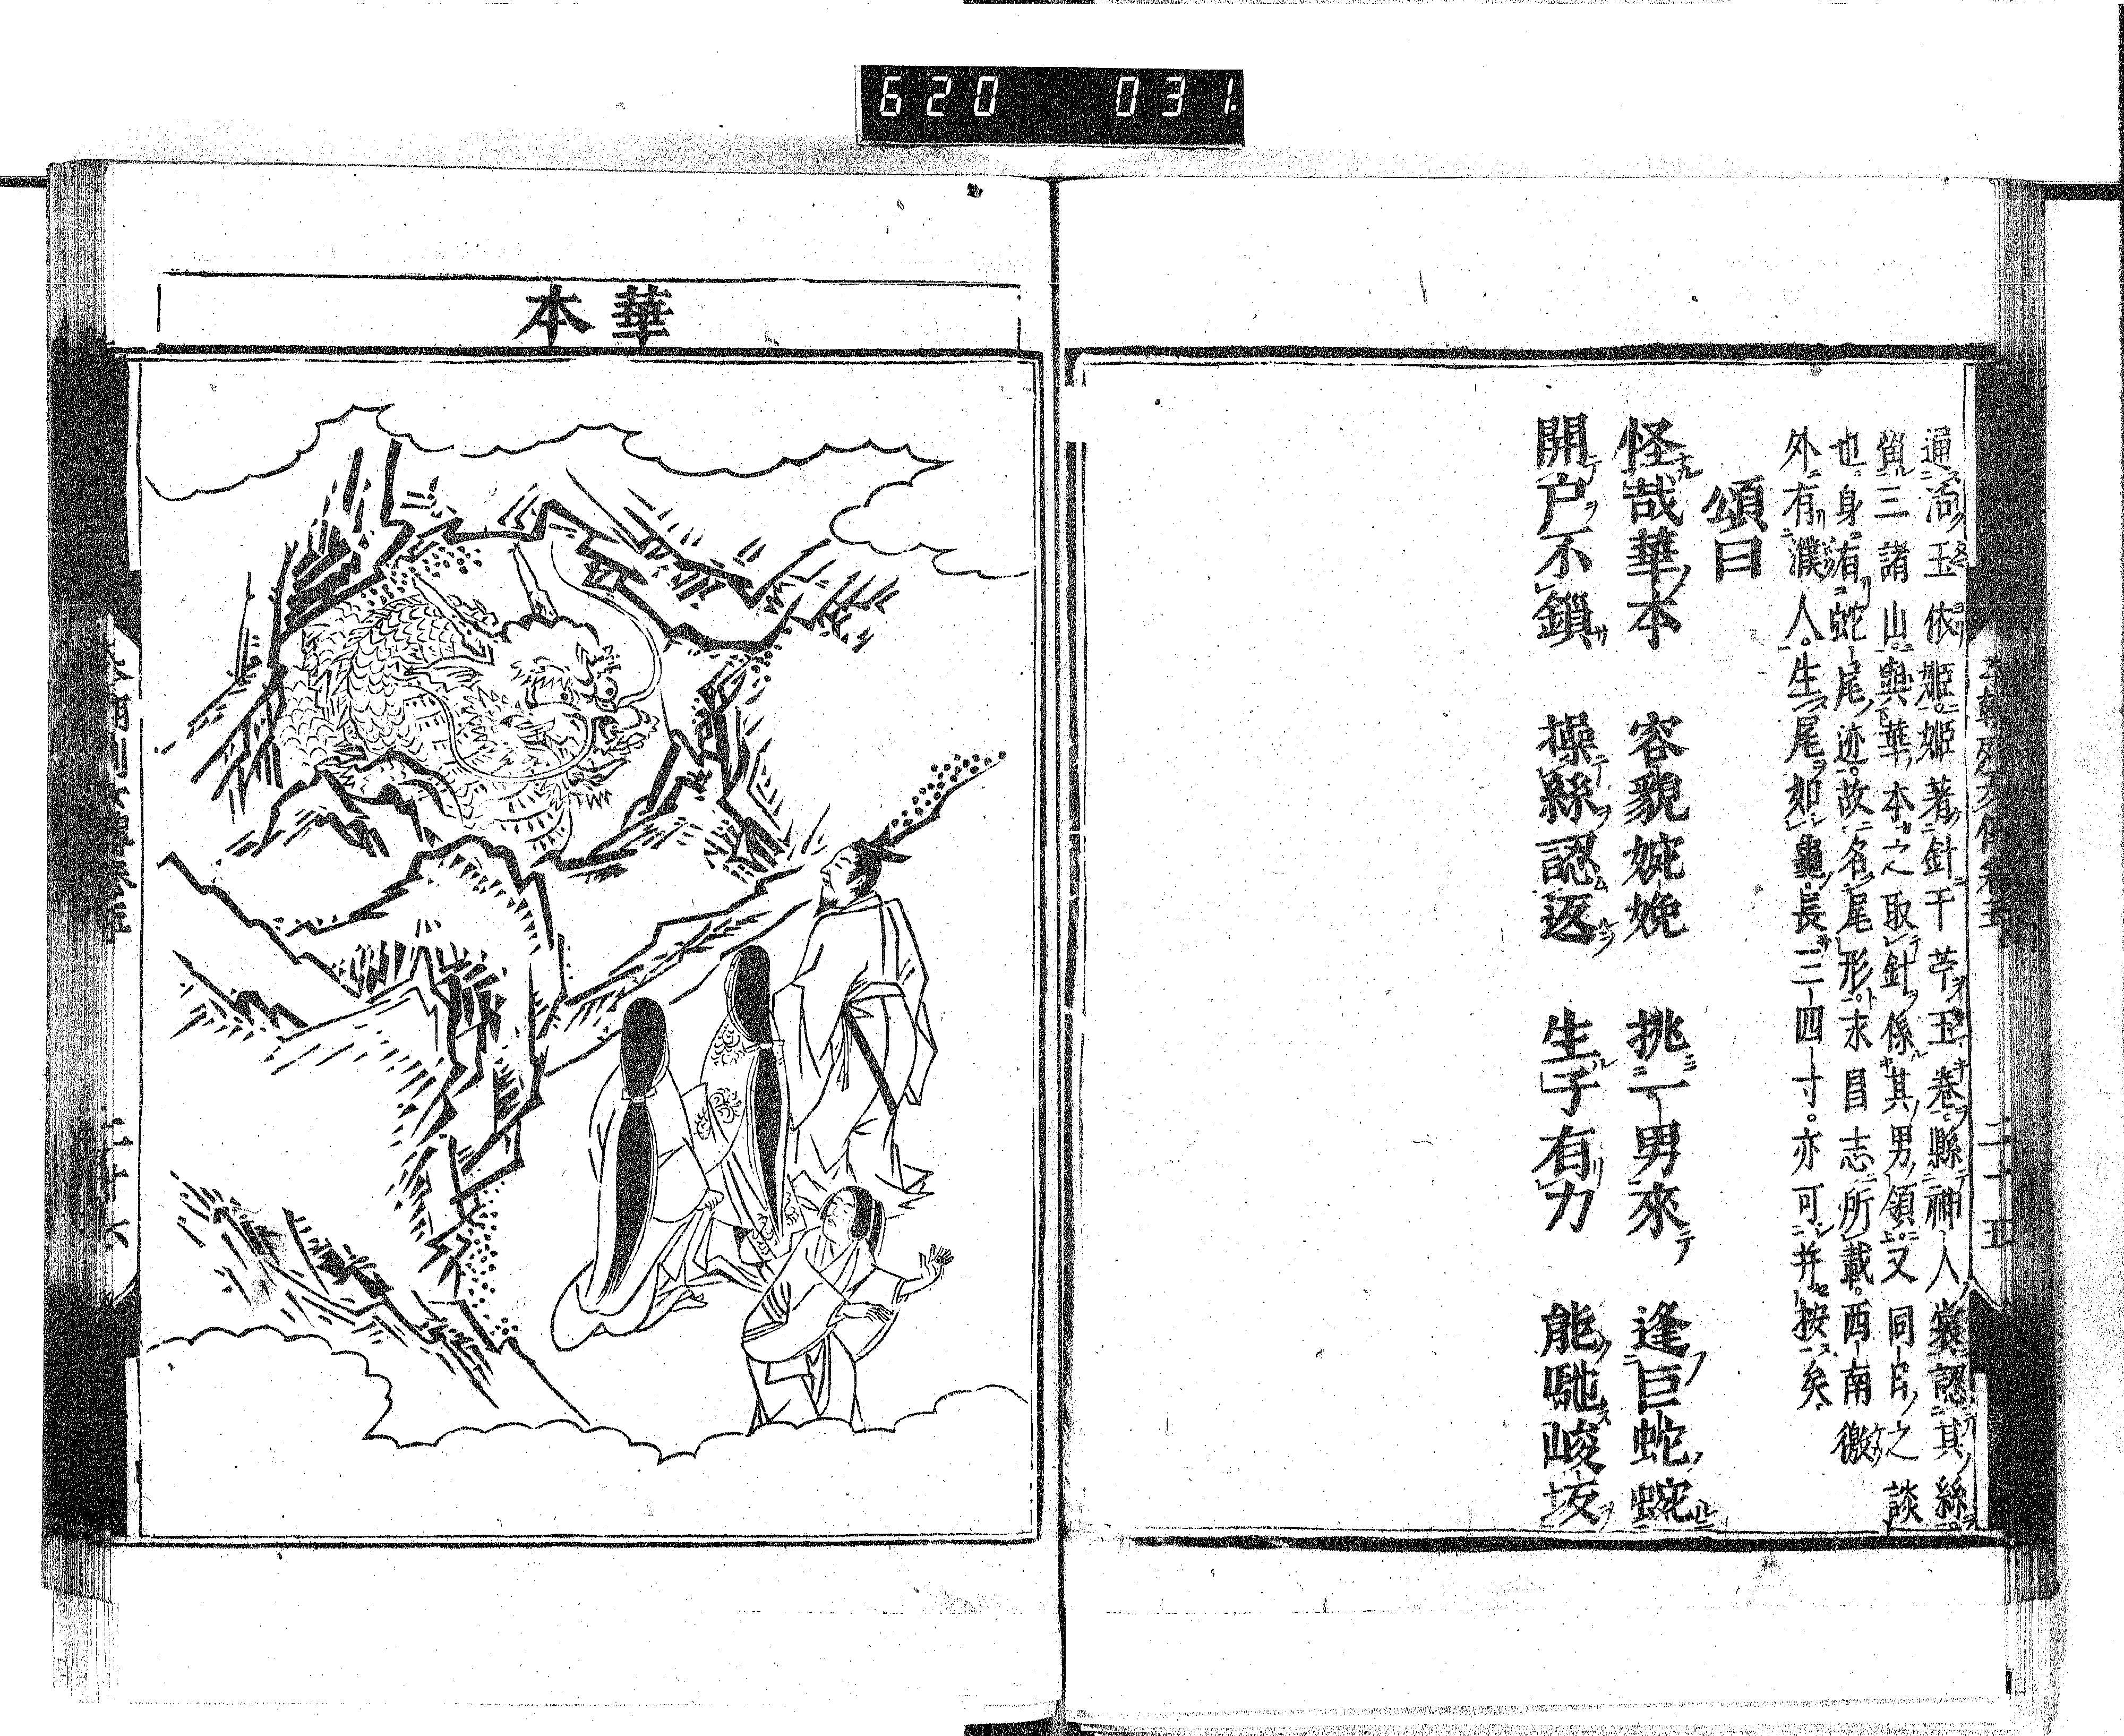 620 031
本朝列女傳卷五 二十五
通活玉依姬姬著針于苧玉卷縣神人裳認其絲
留三諸山與華本之取針係其男領又同日之談
也身有蛇尾迹故名尾形求昌志所載西南徼
外有濮人生尾如龜長三四寸亦可并按矣
頌曰
怪哉華本 容貌婉娩 挑一男來 逢巨蛇蜿
開户不鎖 操絲認返 生子有力 能馳峻坂
華本
二十六